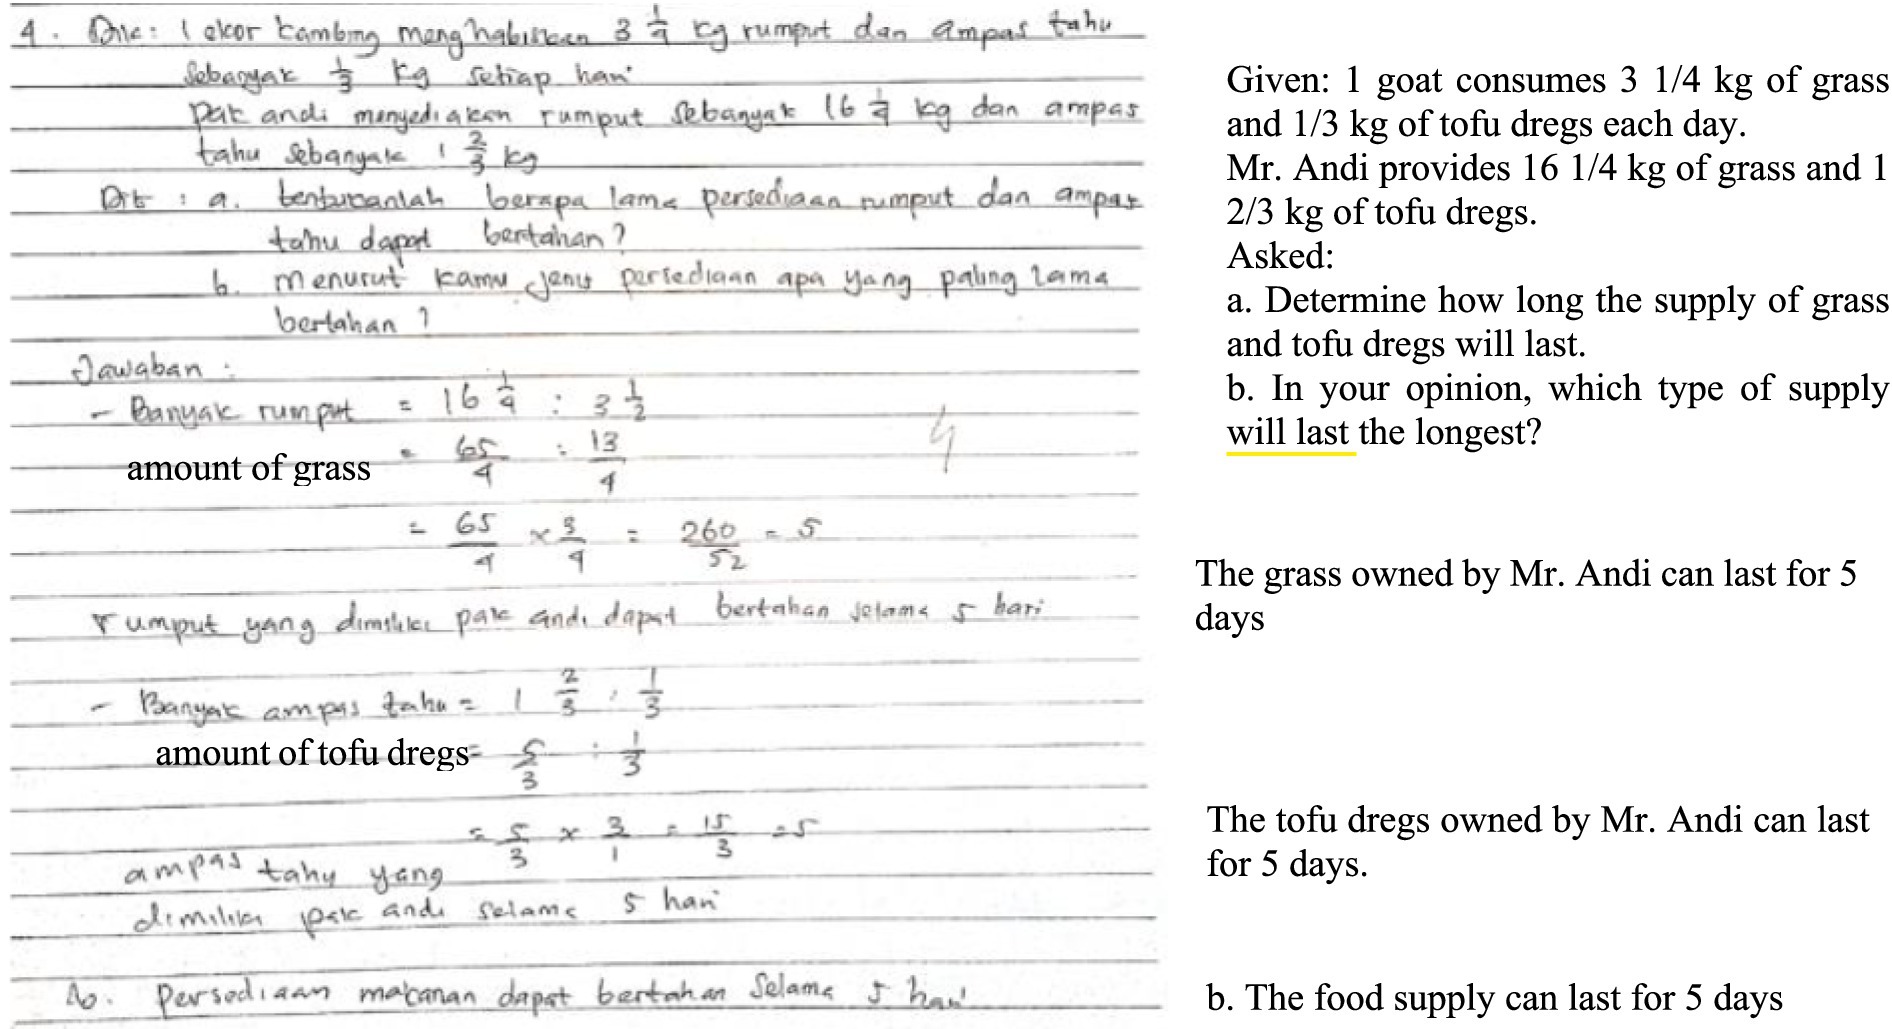 4. Dik: 1 ekor kambing menghabiskan 3 1/4 kg rumput dan ampas tahu
sebanyak 1/3 kg setiap hari
pak andi menyediakan rumput sebanyak 16 1/4 kg dan ampas
tahu sebanyak 1 2/3 kg
Dit : a. tentukanlah berapa lama persediaan rumput dan ampas
tahu dapat bertahan?
b. menurut kamu jenis persediaan apa yang paling lama
bertahan ?
Jawaban :
- Banyak rumput = 16 1/4 : 3 1/2
amount of grass = 65/4 : 13/4
4
= 65/4 × /4 = 260/52 = 5
rumput yang dimiliki pak andi dapat bertahan selama 5 hari
- Banyak ampas tahu = 1 2/3 : 1/3
amount of tofu dregs = 5/3 : 1/3
= 5/3 × 3/1 = 15/3 = 5
ampas tahu yang
dimiliki pak andi selama 5 hari
b. Persediaan makanan dapat bertahan selama 5 hari
Given: 1 goat consumes 3 1/4 kg of grass
and 1/3 kg of tofu dregs each day.
Mr. Andi provides 16 1/4 kg of grass and 1
2/3 kg of tofu dregs.
Asked:
a. Determine how long the supply of grass
and tofu dregs will last.
b. In your opinion, which type of supply
will last the longest?
The grass owned by Mr. Andi can last for 5
days
The tofu dregs owned by Mr. Andi can last
for 5 days.
b. The food supply can last for 5 days